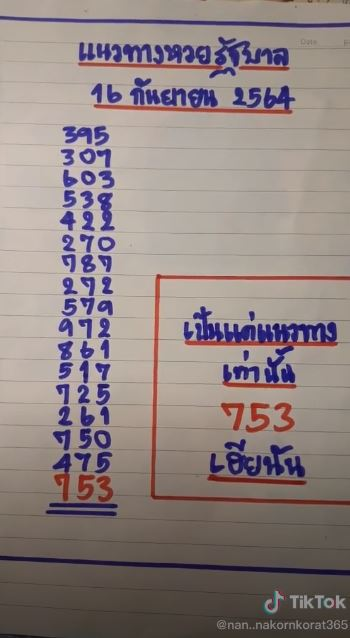 แนวทางหวยรัฐบาล
16 กันยายน 2564
395
307
603
538
422
270
787
272
579
972
861
517
725
261
750
475
753
เป็นแค่แนวทาง
เท่านั้น
753
เฮียนัน
TikTok
@nan..nakornkorat365